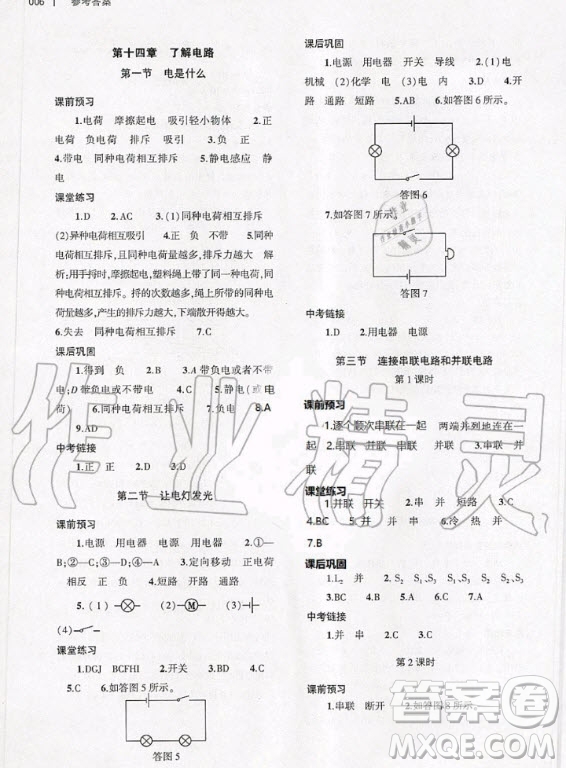 006 | 参考答案
第十四章 了解电路
第一节 电是什么
课前预习
1.电荷 摩擦起电 吸引轻小物体 2.正
电荷 负电荷 排斥 吸引 3.负 正
4.带电 同种电荷相互排斥 5.静电感应 静
电
课堂练习
1.D 2.AC 3.(1)同种电荷相互排斥
(2)异种电荷相互吸引 4.正 负 不带 5.同种
电荷相互排斥,且同种电荷越多,排斥力越大 解
析:用手捋时,摩擦起电,塑料绳上带了同一种电
荷,同种电荷相互排斥。捋的次数越多,绳上所带的
电荷量越多,产生的排斥力越大,下端散开得越大。
6.失去 同种电荷相互排斥 7.C
课后巩固
1.得到 负 2.A 3.A 带负电或者不带
电;D 带负电或不带电 4.C 5.静电(或电
荷) 同种电荷相互排斥 6.负 负 7.B 8.A
9.B 10.AD
中考链接
1.正 正 2.B
第二节 让电灯发光
课前预习
1.电源 用电器 电源 用电器 2.①—
B;②—C;③—D;④—A 3.定向移动 正电荷
相反 正 负 4.短路 开路 通路
5.(1) (2) M (3)
(4)
课堂练习
1.DGJ BCFHI 2.开关 3.BD 4.C
5.C 6.如答图 5 所示。
答图 5
课后巩固
1.电源 用电器 开关 导线 2.(1)电
机械 (2)化学 电 (3)电 内 3.D 4.开
路 通路 短路 5.AB 6.如答图 6 所示。
答图 6
7.如答图 7 所示。
答图 7
中考链接
1.D 2.用电器 电源
第三节 连接串联电路和并联电路
第 1 课时
课前预习
1.逐个顺次串联在一起 两端并列地连在一
起 2.串联 并联 串联 并联 3.串联 并
联
课堂练习
1.并联 开关 2.串 并 短路 3.B
4.BC 5.并 串 并 6.冷热 并
7.B
课后巩固
1.L₂ 并 2.S₂ S₁、S₃ S₂ S₁、S₃
3.BC 4.BC 5.C 6.A 7.A
中考链接
1.并 串 2.D
第 2 课时
课前预习
1.串联 断开 2.如答图 8 所示。
作业精灵
答案圈
MXQE.COM